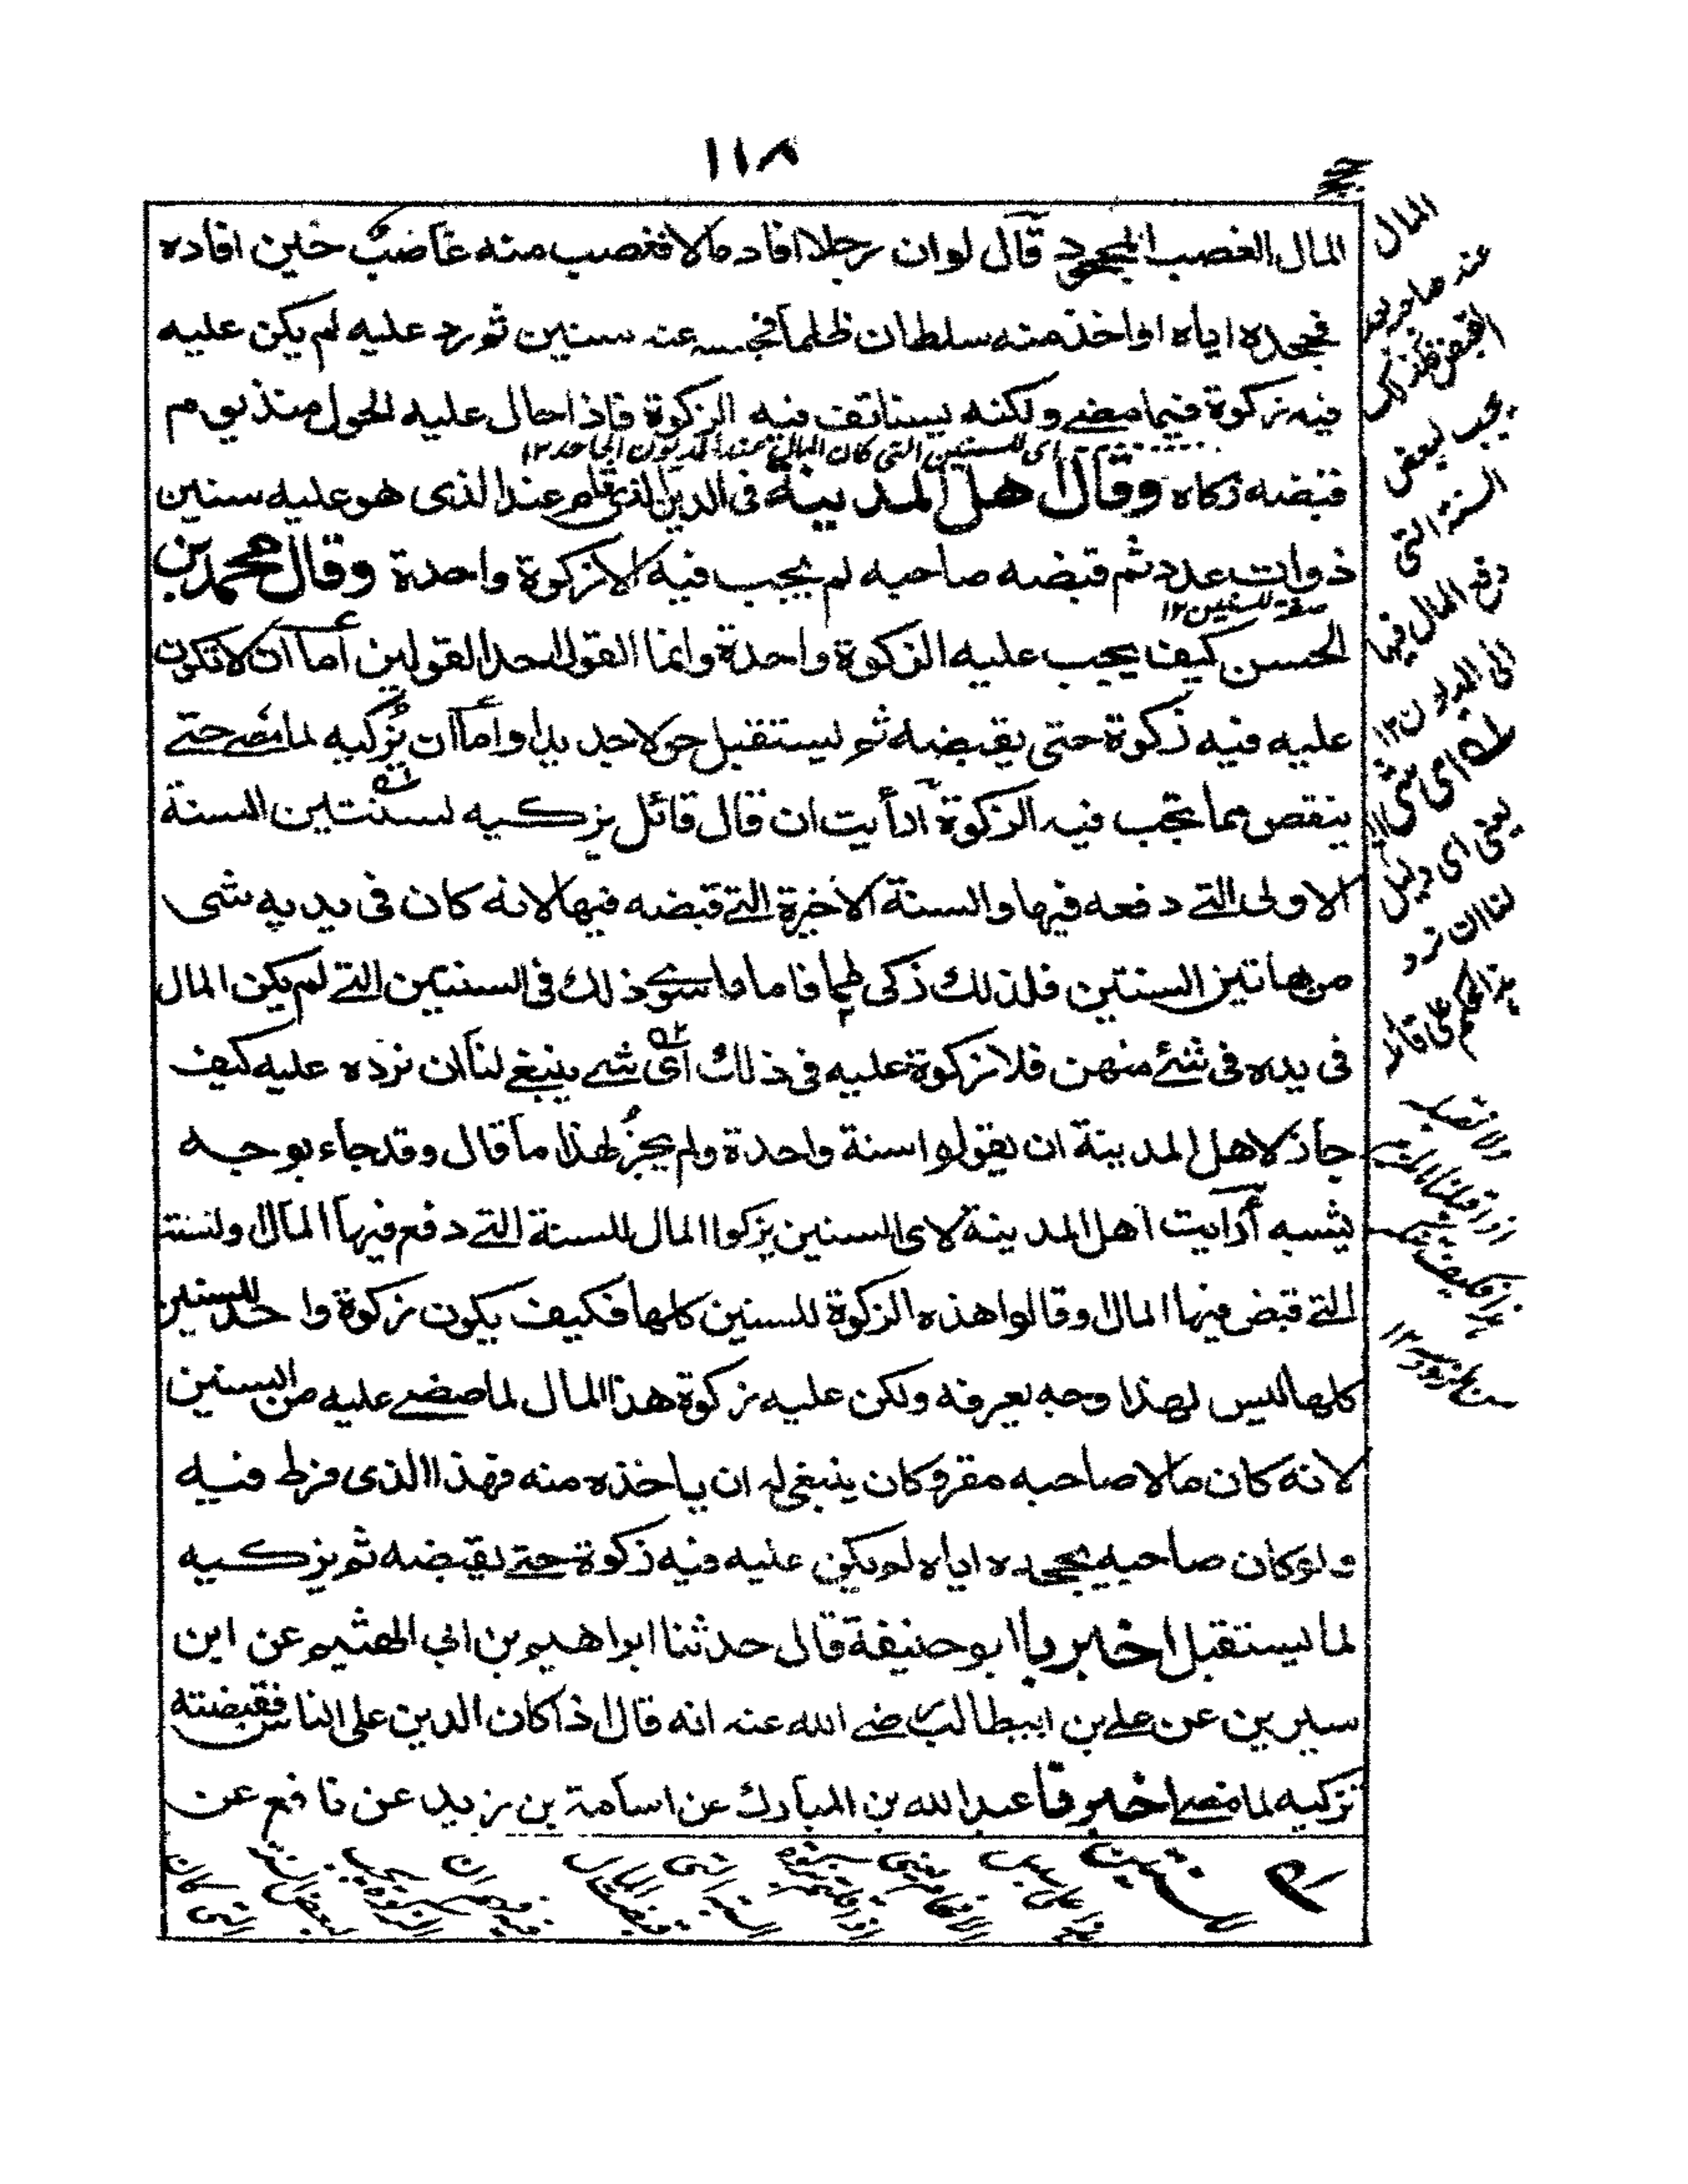 ١١٨
المال الغصب المجحود قال لو ان رجلا افاد مالا فغصب منه غاصب حين افاده
فجحده اياه او اخذ منه سلطان ظلما فحبسه عنه سنين ثم رد عليه لم يكن عليه
فيه زكوة فيما مضى ولكنه يستانف فيه الزكوة فاذا حال عليه الحول منذ يوم
اى للسنين التى كان المال عند المديون الجاحد ١٢
قبضه زكاه وقال اهل المدينة فى الدين الذى يقيم عند الذى هو عليه سنين
ذوات عدد ثم قبضه صاحبه لم يجب فيه الا زكوة واحدة وقال محمد بن
صفة للسنين ١٢
الحسن كيف يجب عليه الزكوة واحدة وانما القول احد القولين أما ان لا تكون
عليه فيه زكوة حتى يقبضه ثم ليستقبل حولا جديدا وأما ان يزكيه لما مضى حتى
ينقص مما تجب فيه الزكوة أرأيت ان قال قائل يزكيه لسنتين السنة
الاولى التى دفعه فيها والسنة الاخيرة التى قبضه فيها لانه كان فى يديه شى
من هاتين السنتين فلذلك زكى لهما فاما ما سوى ذلك فى السنين التى لم يكن المال
فى يده فى شئ منهن فلا زكوة عليه فى ذلك اى شى ينبغى لنا ان نرده عليه كيف
جاز لاهل المدينة ان يقولوا سنة واحدة ولم يجز لهذا ما قال وقد جاء بوجه
يشبه أرايت اهل المدينة لاى السنين يزكوا المال للسنة التى دفع فيها المال او لسنة
التى قبض فيها المال او قالوا هذه الزكوة للسنين كلها فكيف يكون زكوة واحد للسنين
كلها ليس لهذا وجه يعرفه ولكن عليه زكوة هذا المال لما مضى عليه من السنين
لانه كان مالا صاحبه مقر وكان ينبغى له ان ياخذه منه فهذا الذى فرط فيه
ولو كان صاحبه يجحده اياه لم يكن عليه فيه زكوة حتى يقبضه ثم يزكيه
لما يستقبل اخبرنا ابو حنيفة قال حدثنا ابراهيم بن ابى الهثيم عن ابن
سيرين عن على بن ابيطالب رضى الله عنه انه قال اذا كان الدين على الناس فقبضته
تزكيه لما مضى اخبرنا عبد الله بن المبارك عن اسامة بن زيد عن نافع عن
المال
عند صاحبه
يجب لبعض
السنة التى
دفع المال فيها
الى المديون ١٢
اى شى
يعنى اى دليل
لنا ان نرد
هذا الحكم على قائله